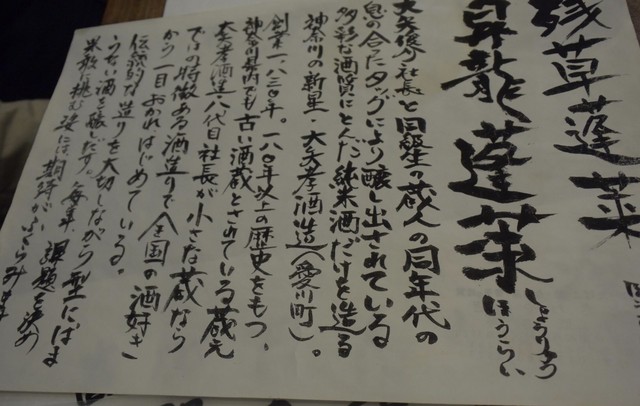 残草蓬莱
昇龍蓬莱
しょうりゅう
ほうらい
大矢俊介社長と同級生の蔵人の同年代の
息の合ったタッグにより醸し出されている
多彩な酒質にとんだ純米酒だけを造る
神奈川の新星・大矢孝酒造(愛川町)。
創業一八三〇年。一八〇年以上の歴史をもつ、
神奈川県内でも古い酒蔵とされている蔵元
大矢孝酒造八代目社長が小さな蔵なら
ではの特徴ある酒造りで全国の酒好き
から一目おかれはじめている。
伝統的な造りを大切しながら型にはま
らない酒を醸しだす。毎年、課題を決め
果敢に挑む姿には期待がふくらみます